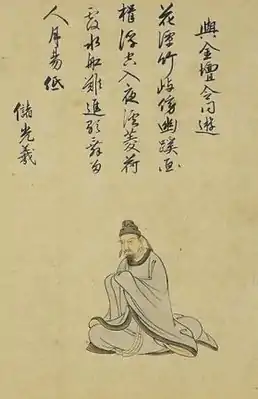 與金壇令同遊
花潭竹嶼傍幽蹊画
楫浮空入夜溪菱荷
覆水船難進歌舞留
人月易低
儲光羲